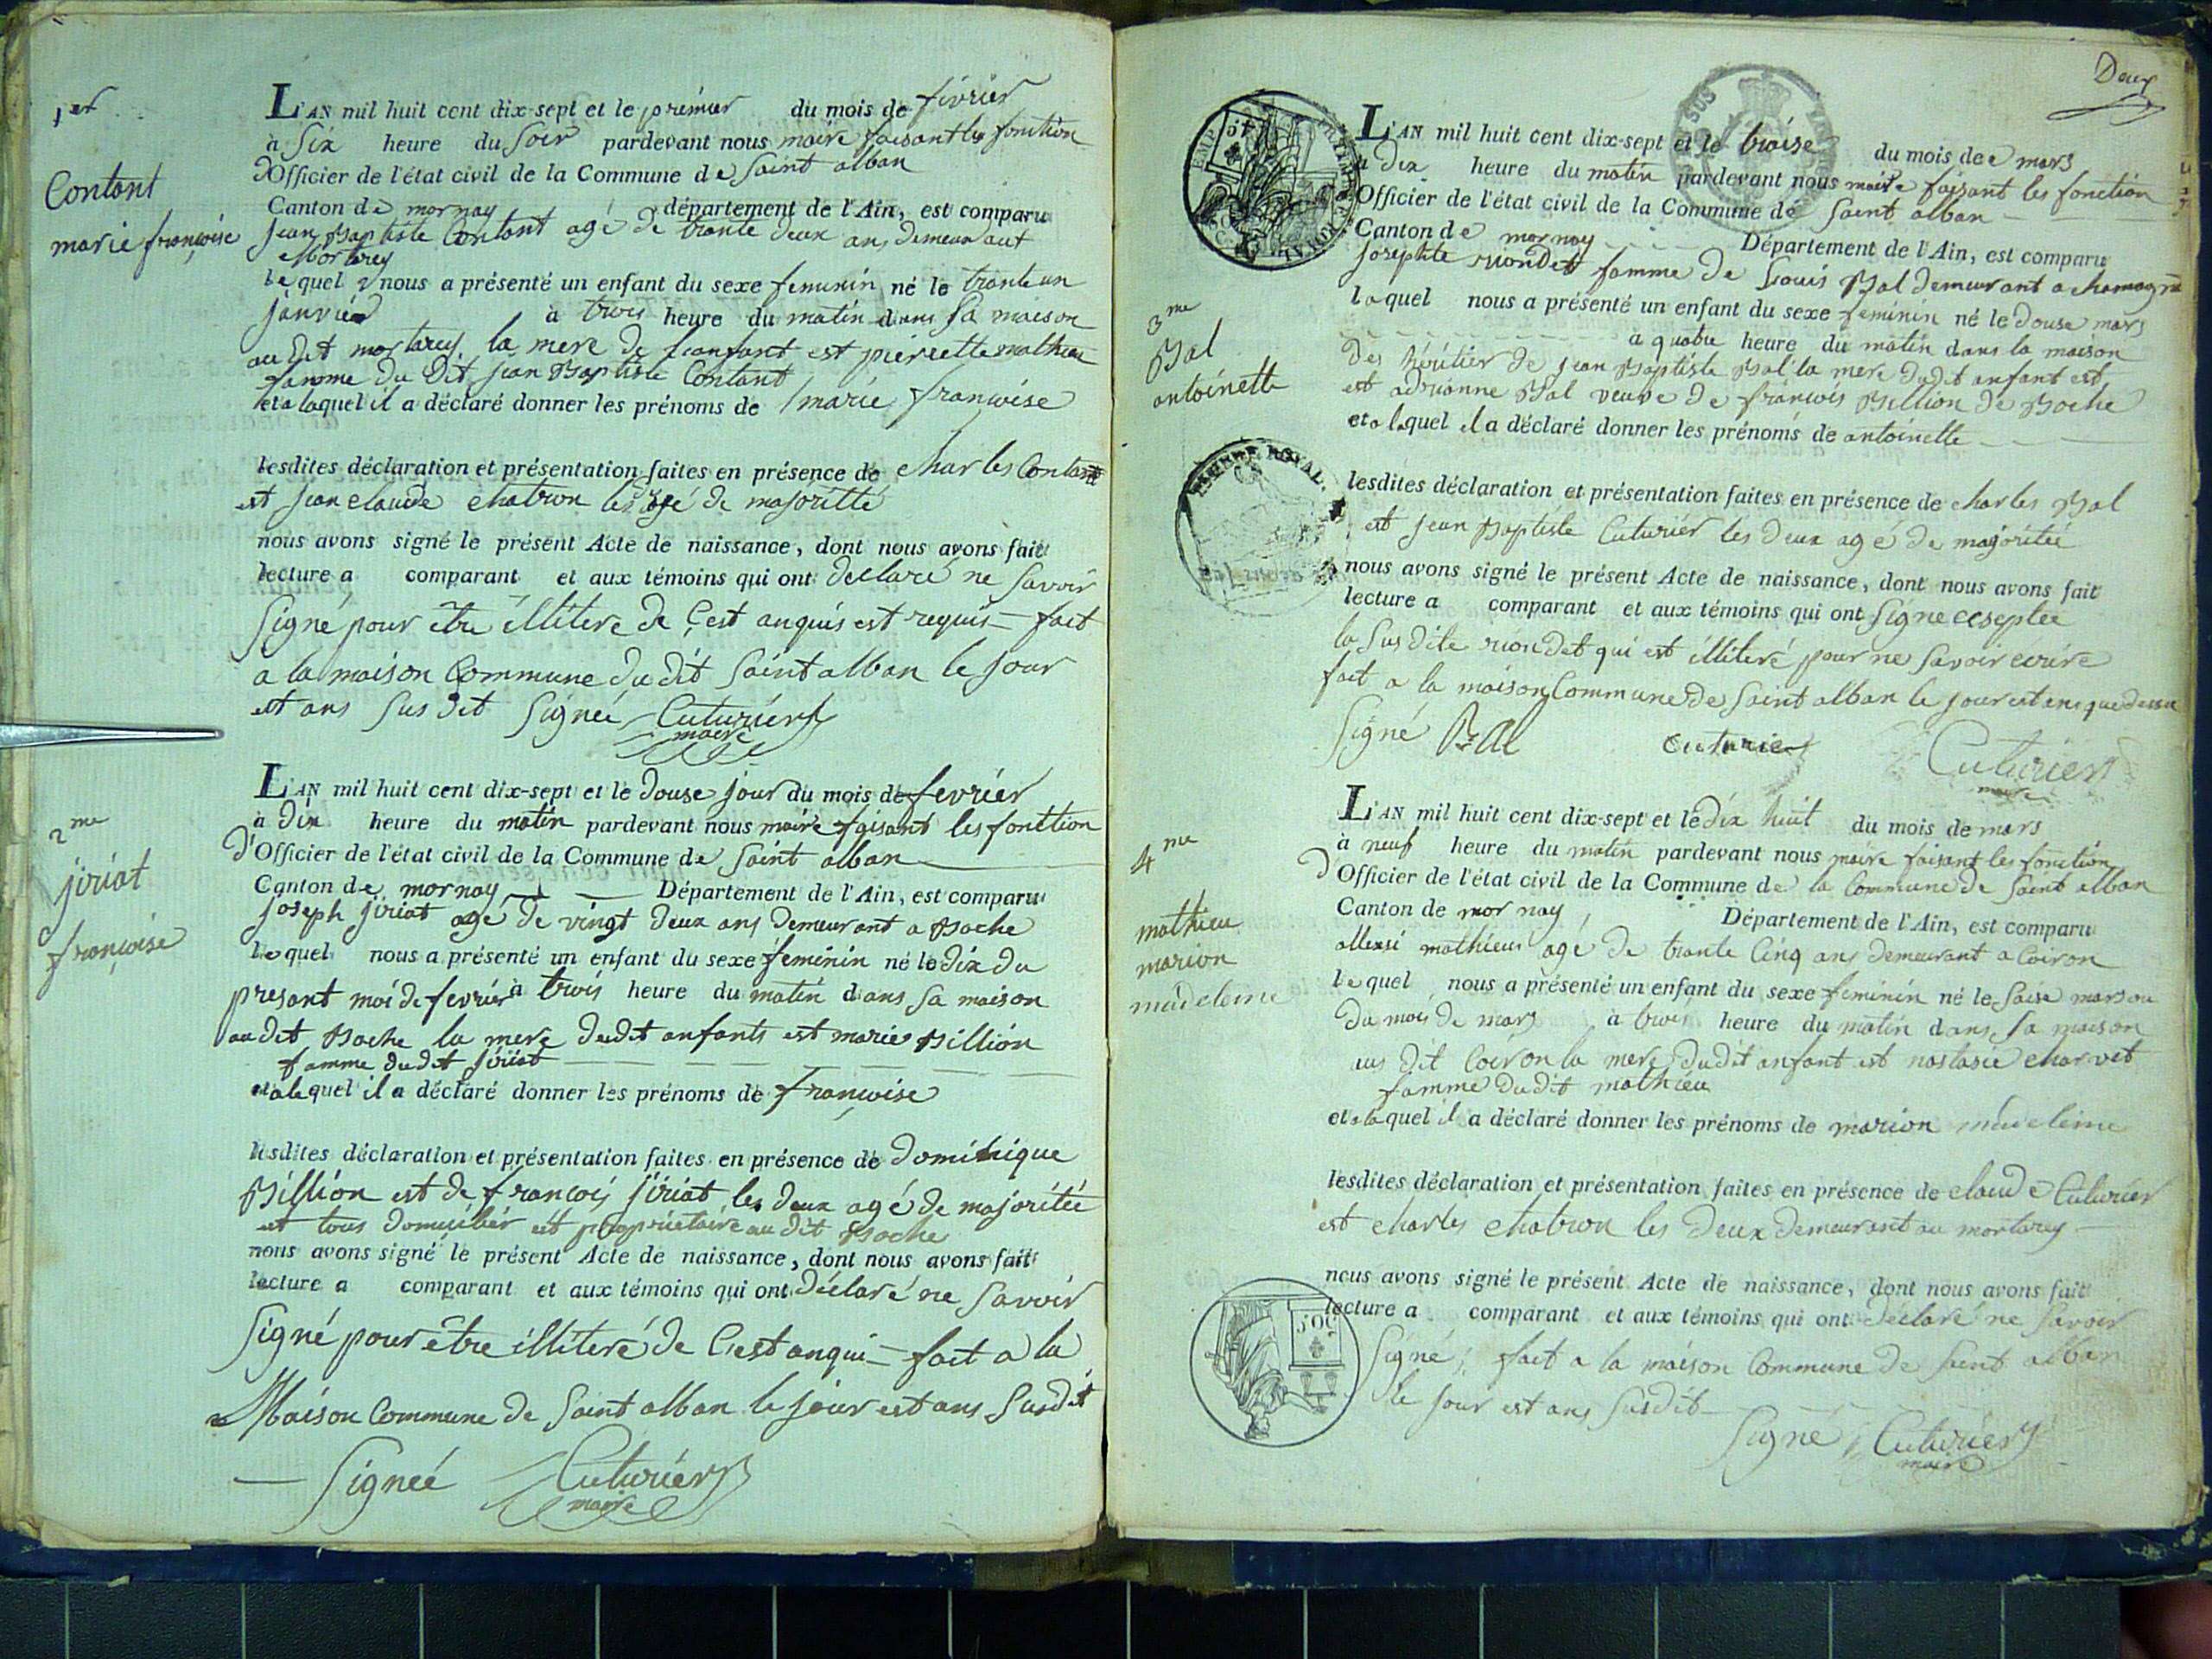 1er
Contant
marie françoise
L'AN mil huit cent dix-sept et le premier du mois de fevrier
à Six heure du Soir pardevant nous maire faisant les fonction
D'Officier de l'état civil de la Commune de Saint alban
Canton de mornay département de l'Ain, est comparu
Jean Baptiste Contant agé de trante deux ans demeurant
Mortarey
lequel nous a présenté un enfant du sexe feminin né le trante un
janvier à trois heure du matin dans Sa maison
au Dit mortarey la mere de l'anfant est pierrette mathieu
famme du Dit Jean Baptiste Contant
et a laquel il a déclaré donner les prénoms de marie françoise
lesdites déclaration et présentation faites en présence de charles Contant
est Jean claude chatron les agé de majoritté
nous avons signé le présent Acte de naissance, dont nous avons fait
lecture a comparant et aux témoins qui ont declaré ne Savoir
Signé pour être illitere de C'est anquis est requis – fait
a la maison Commune du dit Saint alban le Jour
est ans Sus Dit Signeé Cuturier
maire
2me
jiriat
françoise
L'AN mil huit cent dix-sept et le douse jour du mois de fevrier
à dix heure du matin pardevant nous maire faisant les fonttion
d'Officier de l'état civil de la Commune de Saint alban
Canton de mornay Département de l'Ain, est comparu
joseph jiriat agé de vingt deux ans demeurant a Boche
lequel nous a présenté un enfant du sexe feminin né le dix du
presant moi de fevrier à trois heure du matin dans sa maison
audit Boche la mere dudit anfants est marie Billion
famme dudit jiriat
et a lequel il a déclaré donner les prénoms de françoise
lesdites déclaration et présentation faites en présence de dominique
Billion est de françois jiriat les deux agé de majoritée
et tous domicilier est propriétaire au dit Boche
nous avons signé le présent Acte de naissance, dont nous avons fait
lecture a comparant et aux témoins qui ont déclaré ne Savoir
Signé pour être illiteré de C'est anqui – fait a la
Maison Commune de Saint alban le jour est ans Susdit
Signeé Cuturier
maire
Deux
3me
Bal
antoinette
L'AN mil huit cent dix-sept et le traise du mois de mars
à dix heure du matin pardevant nous maire faisant les fonction
Officier de l'état civil de la Commune de Saint alban
Canton de mornay Département de l'Ain, est comparu
Josephte riondet famme de Louis Bal demeurant a chamagna
laquel nous a présenté un enfant du sexe feminin né le douse mars
à quatre heure du matin dans la maison
des héritier de jean Baptiste Bal la mere dudit anfant est
est adrianne Bal veuve de françois Billion de Boche
et a lequel il a déclaré donner les prénoms de antoinette
lesdites déclaration et présentation faites en présence de charles Bal
est jean Baptiste Cuturier les deux agé de majoritée
nous avons signé le présent Acte de naissance, dont nous avons fait
lecture a comparant et aux témoins qui ont Signe ceseptee
la Susdite riondet qui est illiteré pour ne Savoir ecrire
fait a la maison Commune de Saint alban le jour est ans que dessu
Signé Bal Cuturier Cuturier
maire
4me
mathieu
marion
madeleine
L'AN mil huit cent dix-sept et le dix huit du mois de mars
à neuf heure du matin pardevant nous maire faisant les fonction
d'Officier de l'état civil de la Commune de la Commune de Saint alban
Canton de mornay, Département de l'Ain, est comparu
allexsi mathieu agé de trante Cinq ans demeurant a Coiron
lequel nous a présenté un enfant du sexe feminin né le Saise mars ou
du mois de mars à trois heure du matin dans Sa maison
aus dit Coiron la mere dudit anfant est nastasie charvet
famme dudit mathieu
et a laquel il a déclaré donner les prénoms de marion madeleine
lesdites déclaration et présentation faites en présence de claude Cuturier
est charles chatron les deux demeurant au mortarey
nous avons signé le présent Acte de naissance, dont nous avons fait
lecture a comparant et aux témoins qui ont déclaré ne Savoir
Signé, fait a la maison Commune de Saint alban
le jour est ans Susdit
Signé Cuturier
maire